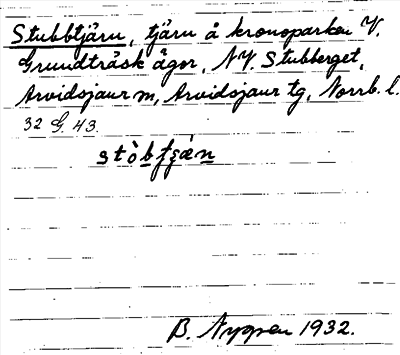 Stubbtjärn, tjärn å kronoparken V.
Grundträsk ägor, NV. Stubberget,
Arvidsjaur sn, Arvidsjaur tg, Norrb. l.
32 G. 43.
B. Nygren 1932.